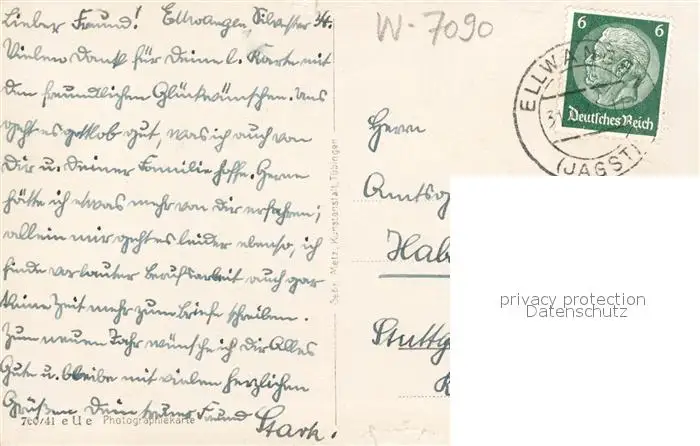 Lieber Freund! Ellwangen Silvester 34.
Vielen Dank für Deine l. Karte mit
den freundlichen Glückwünschen. Uns
geht es gottlob gut, was ich auch von
Dir u. Deiner Familie hoffe. Gerne
hätte ich etwas mehr von Dir erfahren;
allein mir geht es leider ebenso, ich
finde vor lauter Berufsarbeit auch gar
keine Zeit mehr zum Briefe schreiben.
Zum neuen Jahr wünsche ich Dir Alles
Gute u. bleibe mit vielen herzlichen
Grüßen Dein treuer Freund
Stark.
7c0/41 e U e Photographiekarte
Gebr. Metz, Kunstanstalt, Tübingen
W-7090
6 6
Deutsches Reich
ELLWANGEN
31
(JAGST)
Herrn
Amtsg
Hab
Stuttg
privacy protection
Datenschutz